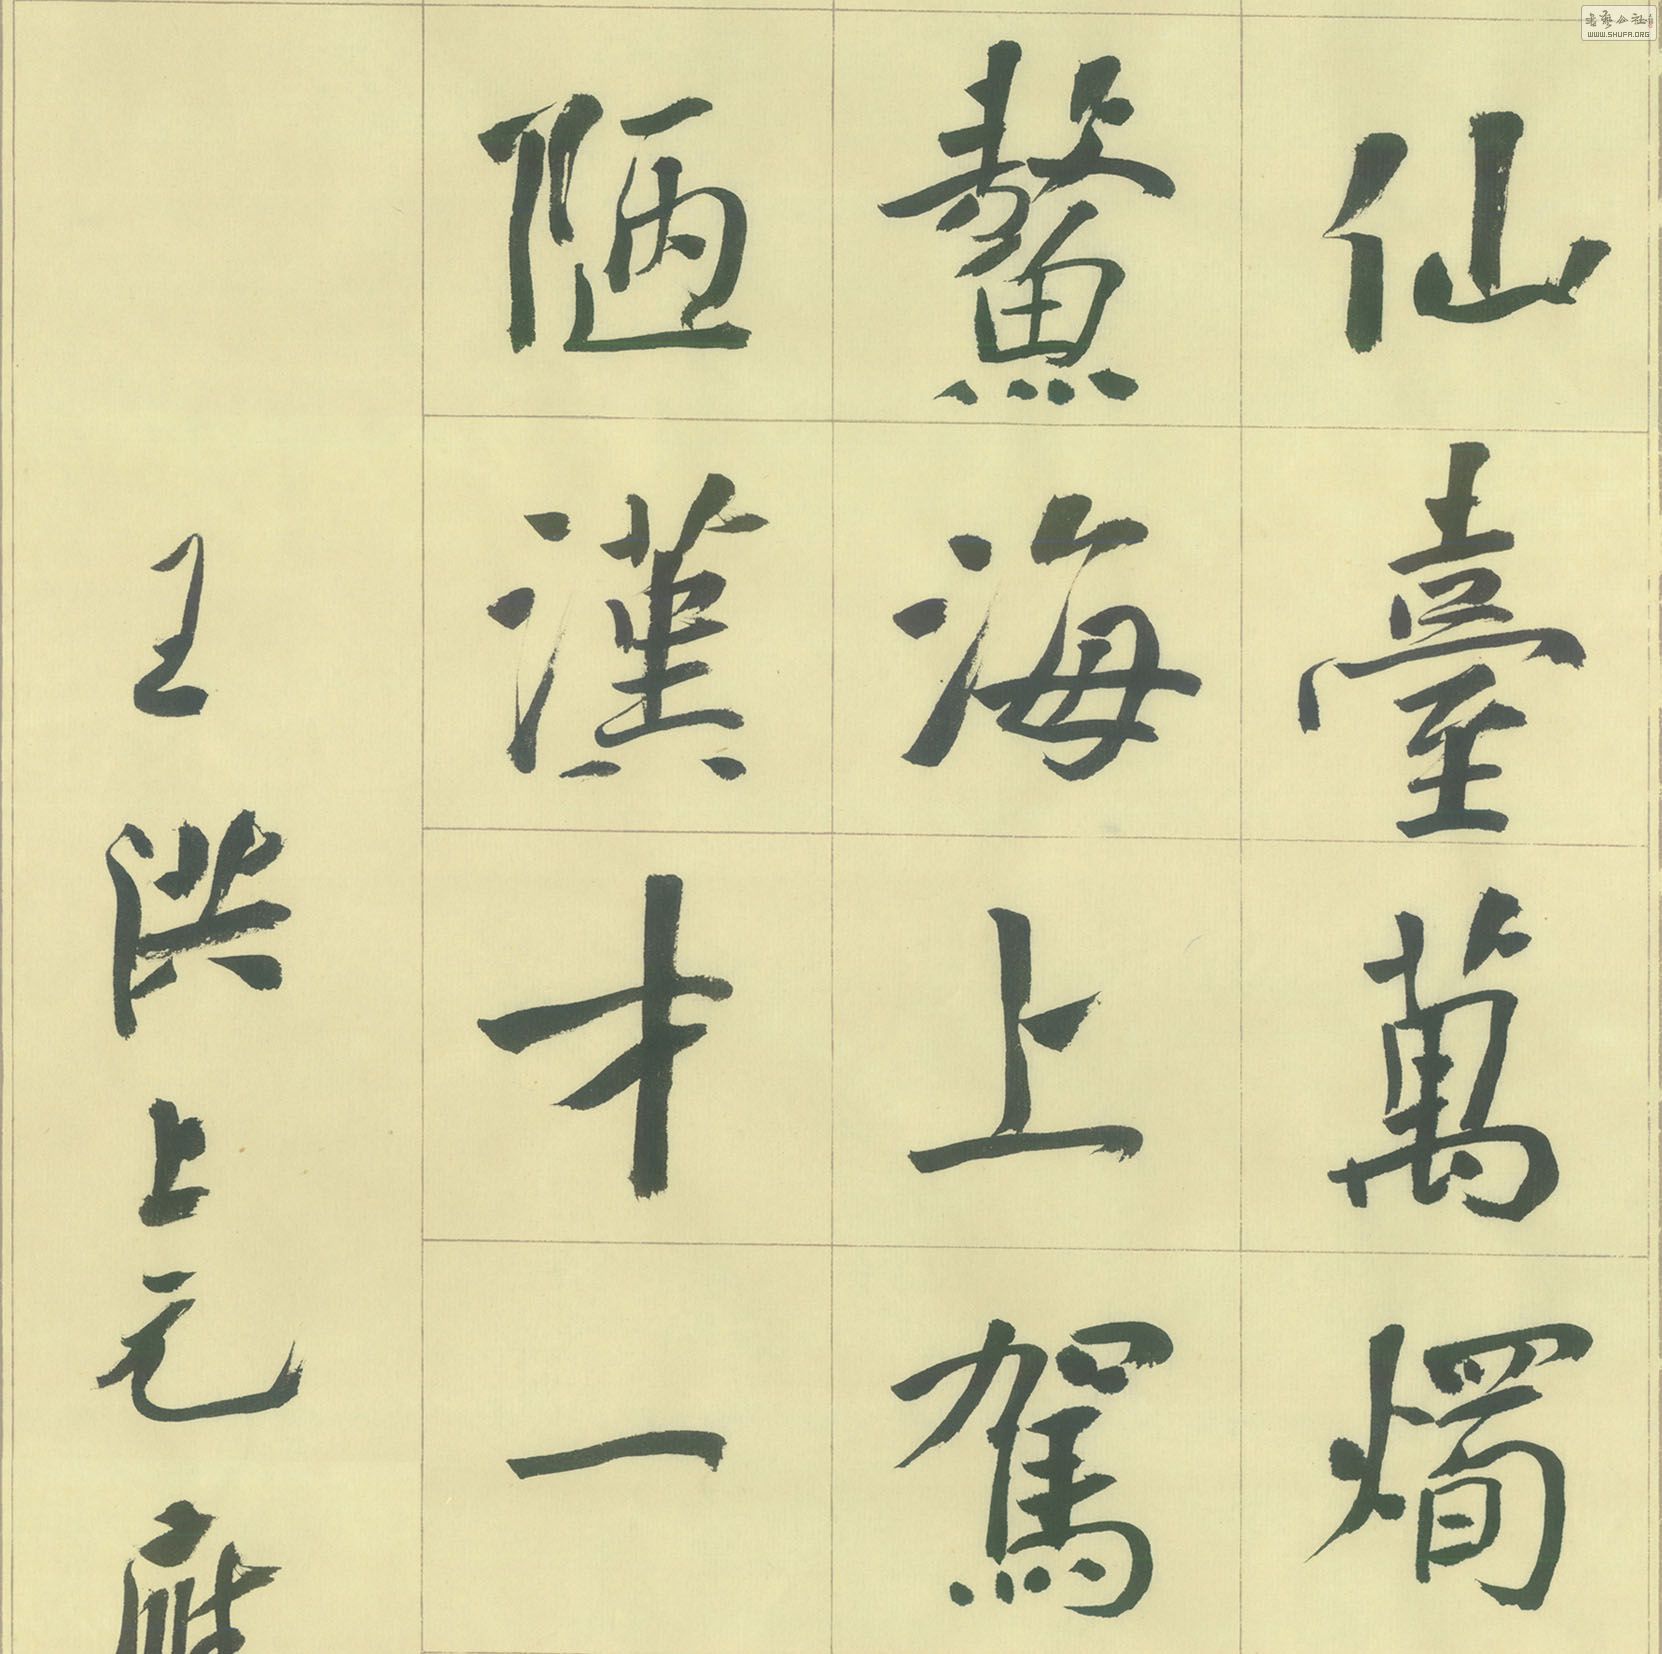 仙臺萬燭
鰲海上駕
陋漢才一
王洪上元應
書藝公社
WWW.SHUFA.ORG